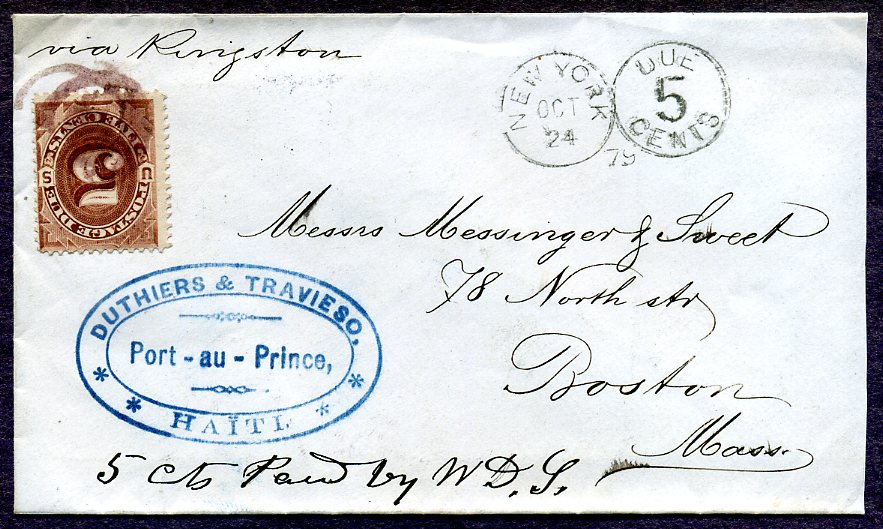 via Kingston
NEW YORK
OCT
24
79
DUE
5
CENTS
POSTAGE DUE
U S
5
FIVE CENTS
Messrs Messinger & Sweet
78 North str
Boston
Mass.
DUTHIERS & TRAVIESO,
Port-au-Prince,
* HAÏTI. *
5 cts Paid by W.D.S.